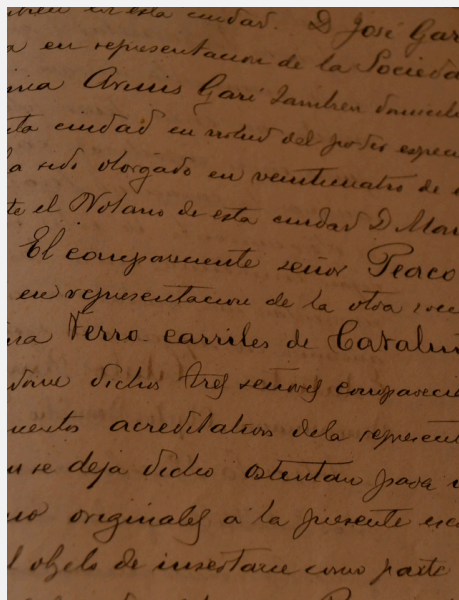 en esta ciudad. D José Gar
en representacion de la Socieda
Arnús Garí tambien domicili
ta ciudad en virtud del poder espec
a sido otorgado en veinticuatro de
te el Notario de esta ciudad D
El compareciente señor Pearco
en representacion de la otra soc
Ferro-carriles de Catalu
dichos tres señores comparecie
mentos acreditativos de la represent
se deja dicho ostentan para
originales a la presente esc
l objeto de insertarse como parte